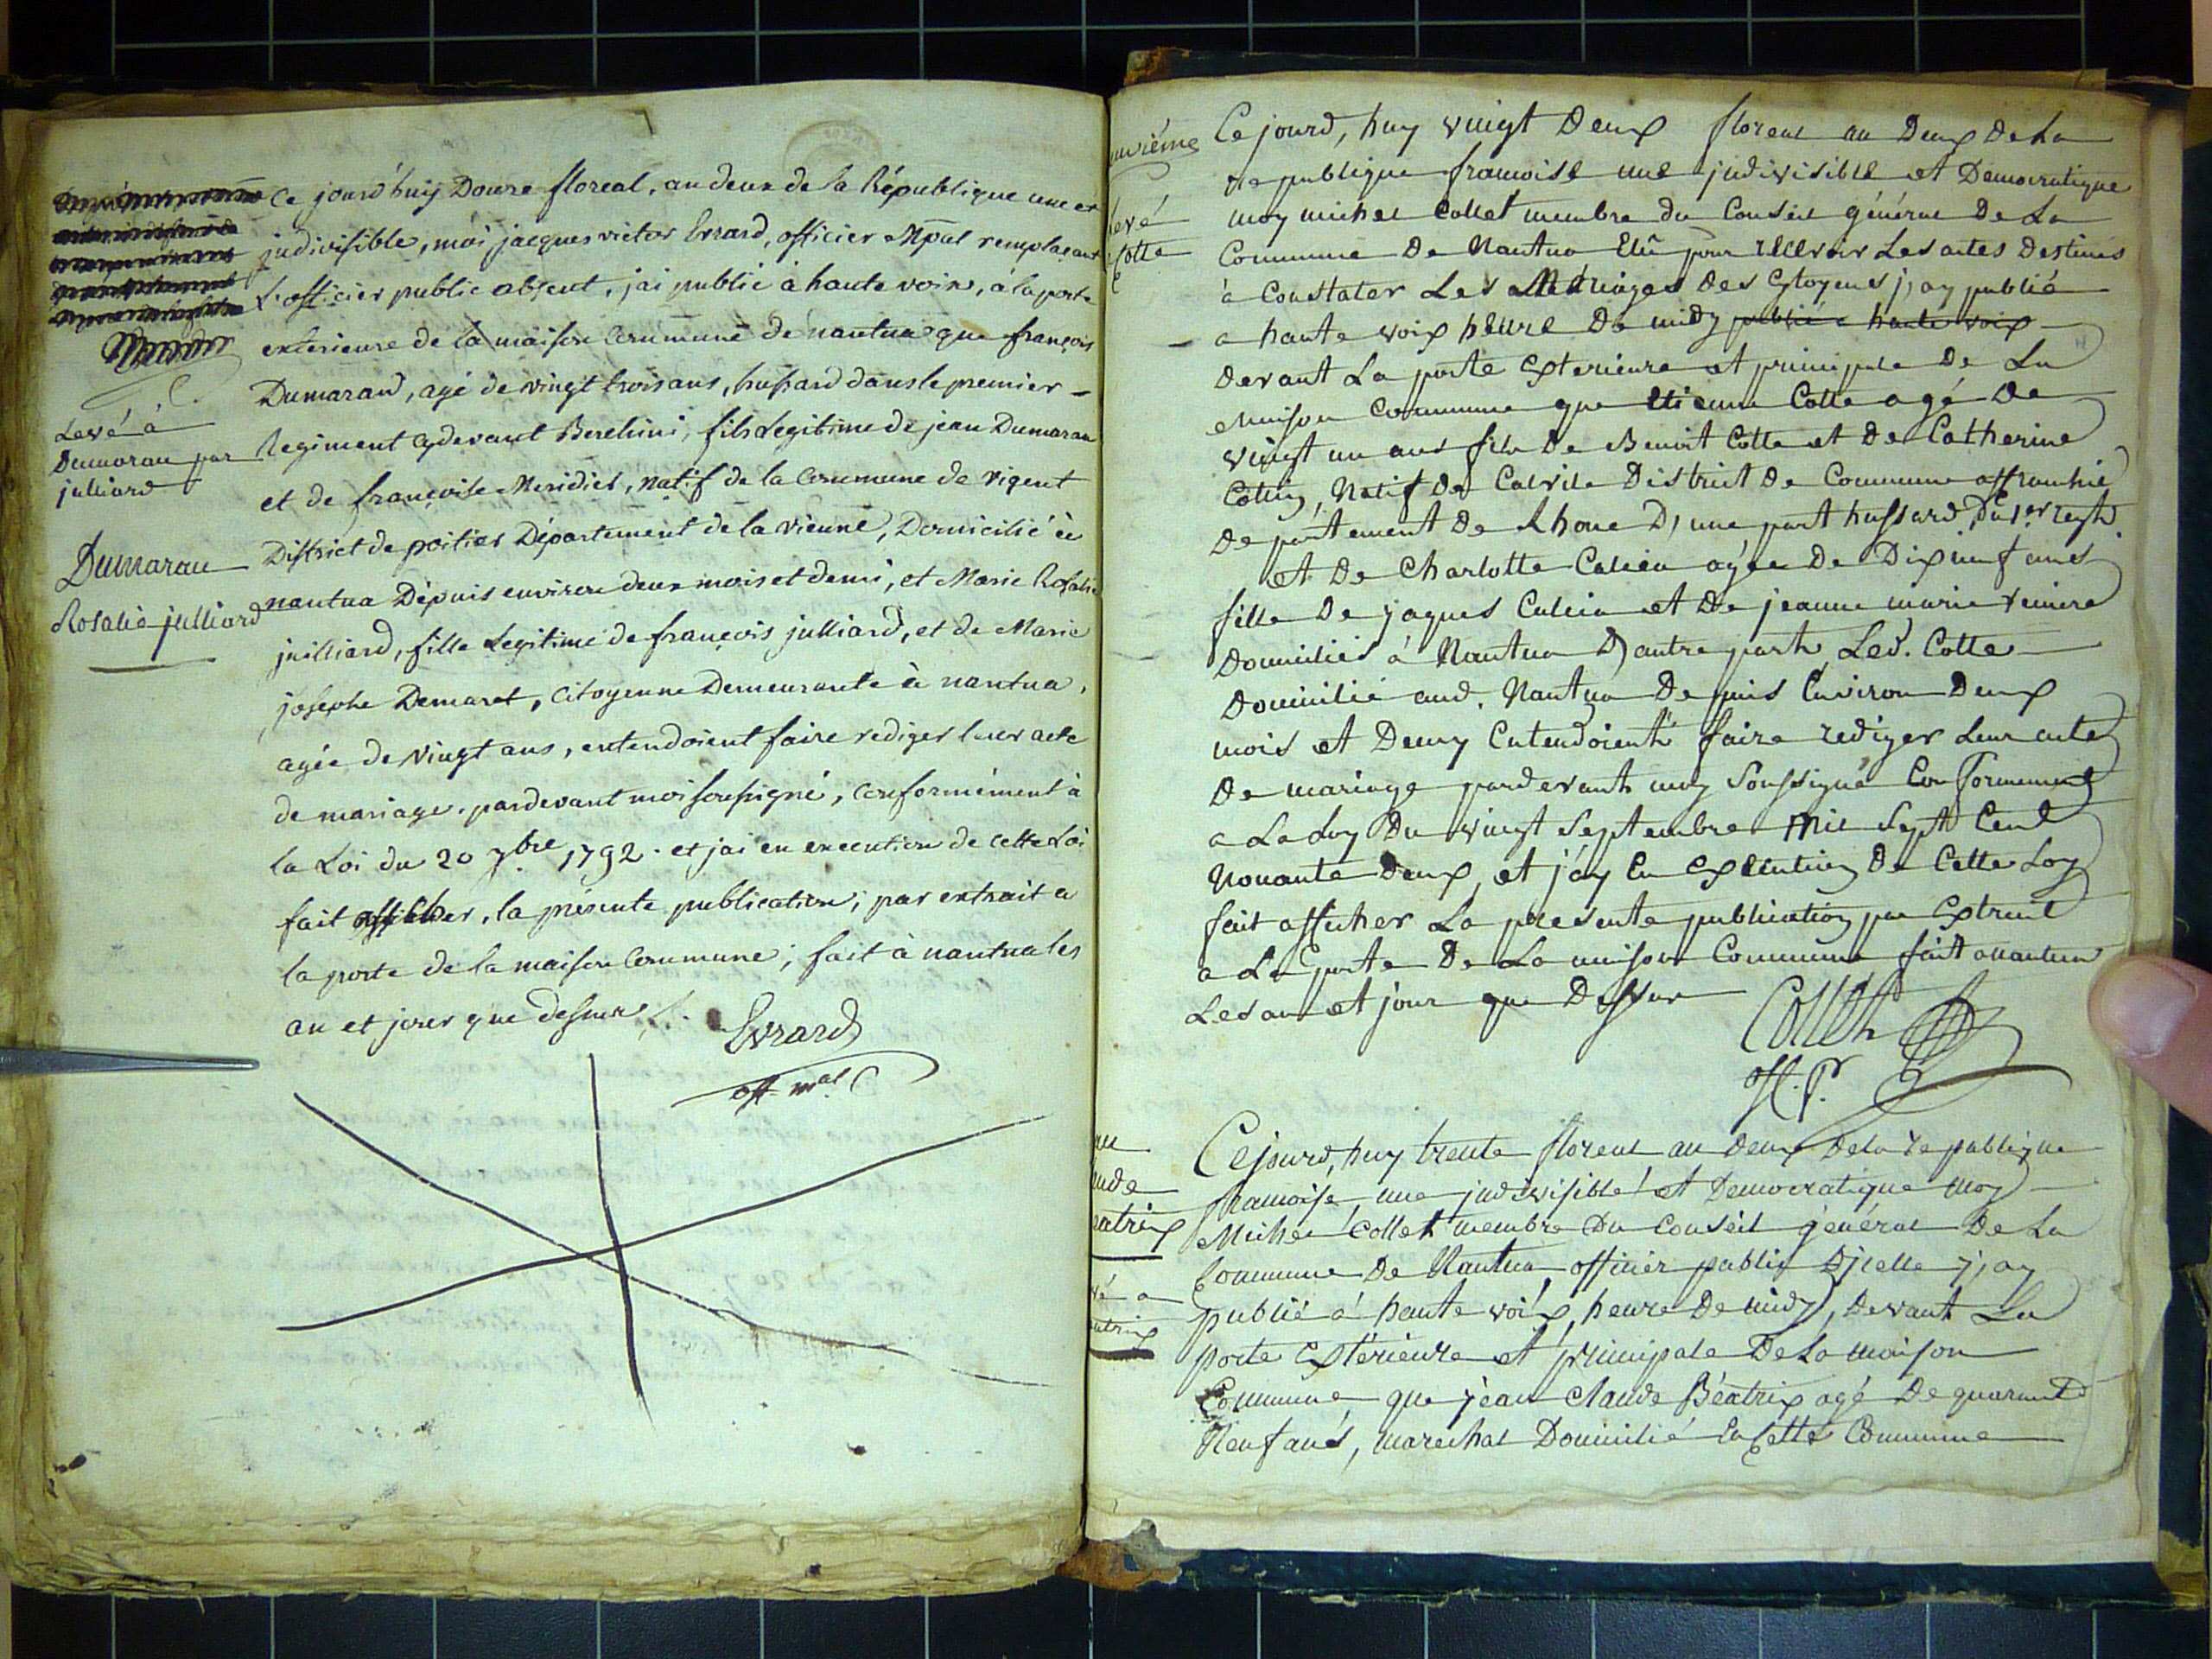 Levé à
Dumarau par
julliard
Dumarau
Rosalie julliard
Ce jourd'huy Douze floreal, an deux de la République une et
indivisible, moi jacques victor Evrard, officier Mpal remplaçant
L'officier public absent, j'ai publié à haute voix, à la porte
exterieure de la maison Commune de nantua que françois
Dumarau, agé de vingt trois ans, hussard dans le premier
Regiment cydevant Berchini, fils Legitime de jean Dumarau
et de françoise Meridiet, natif de la Commune de vigent
District de poitier Département de la vienne, Domicilié à
nantua Dépuis environ deux mois et demi, et Marie Rosalie
juilliard, fille Legitime de françois julliard, et de Marie
josephe Demaret, Citoyenne Demeurante à nantua,
agée de vingt ans, entendoient faire rediger leur acte
de mariage, pardevant moi soussigné, conformément à
la Loi du 20 7bre 1792. et j'ai en execution de cette Loi
fait afficher, la présente publication, par extrait a
la porte de la maison Commune; fait à nantua les
an et jour que dessus.
Evrard
off. mal
uvième
Levé
Cotte
Ce jourd, huy vingt Deux floreal an Deux De La
republique francoise une indivisible et Democratique
moy michel Collet membre du Conseil général De La
Commune De Nantua Elû pour recevoir Les actes Destinés
à Constater Les Mariages Des Citoyens j,ay publié
a haute voix heure De midy publié a haute voix
Devant La porte Exterieure et principale De La
Maison Commune que Etienne Cotte agé De
vingt un ans fils De Benoit Cotte et De Catherine
Cottin, Natif De Calvile District De Commune affranchie
Departement De Rhone D, une part hussard Du 1er regt.
et De Charlotte Calcia agée De Dixneuf ans
fille De jaques Calcia et De jeanne marie
Domiciliés à Nantua D, autre part, Led. Cotte
Domicilié aud. Nantua Depuis Environ Deux
mois et Demy Entendoient faire rediger Leur acte
De mariage pardevant moy Soussigné Conformement
a La Loy Du vingt Septembre Mil Sept Cent
Nonante Deux, et j'ay En Execution De Cette Loy
fait afficher La presente publication par Extrait
a La porte De La maison Commune fait a nantua
Les an et jour que Dessus
Collet
off. P.
au
ude
eatrix
vé a
atrix
Ce jourd, huy trente floreal an Deux De La republique
francoise, une indivisible et Democratique moy
Michel Collet membre Du Conseil général De La
Commune De Nantua officier public D, icelle j, ay
publié à haute voix, heure De midy, Devant La
porte Exterieure et principale De La maison
Commune que jean Claude Béatrix agé De quarante
Neuf ans, marechal Domicilié En Cette Commune